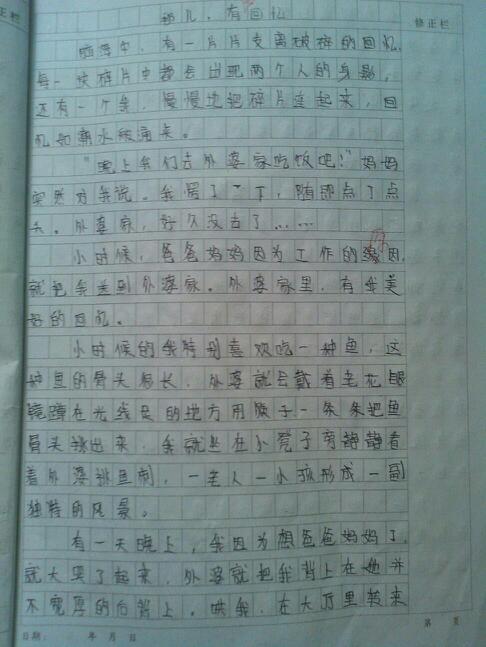 那儿，有回忆
修正栏
脑海中，有一片片支离破碎的回忆，
每一块碎片中都会出现两个人的身影，
还有一个家，慢慢地把碎片连起来，回
忆如潮水般涌来。
"晚上我们去外婆家吃饭吧！"妈妈
突然对我说。我愣了一下，随即点了点
头。外婆家，好久没去了……
小时候，爸爸妈妈因为工作的缘因，
就把我送到外婆家。外婆家里，有我美
好的回忆。
小时候的我特别喜欢吃一种鱼，这
种鱼的骨头很长，外婆就会戴着老花眼
镜蹲在光线足的地方用筷子一条条把鱼
骨头挑出来，我就坐在小凳子旁静静看
着外婆挑鱼刺，一老人一小孩形成一副
独特的风景。
有一天晚上，我因为想爸爸妈妈了，
就大哭了起来，外婆就把我背上在她并
不宽厚的后背上。哄我，在大厅里转来
第 页
日期： 年 月 日